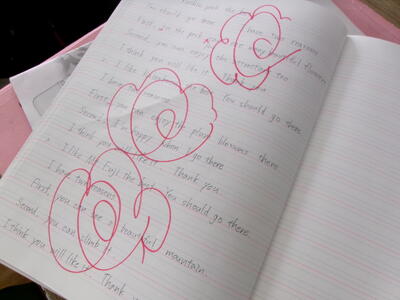 park the
You should go there. I have two reasons
First, in the park are many beautiful flowers
Second, you can enjoy the attraction too
I think you will like it. Thank you
I like best. You should go there
I have two reasons
First, you can enjoy the plum blossoms there
Second, I'm happy when I go there
I think you will like it. Thank you.
I like Mt. Fuji the best. You should go there
I have two reasons
First, you can see a beautiful mountain.
Second, you can climb it.
I think you will like it. Thank you